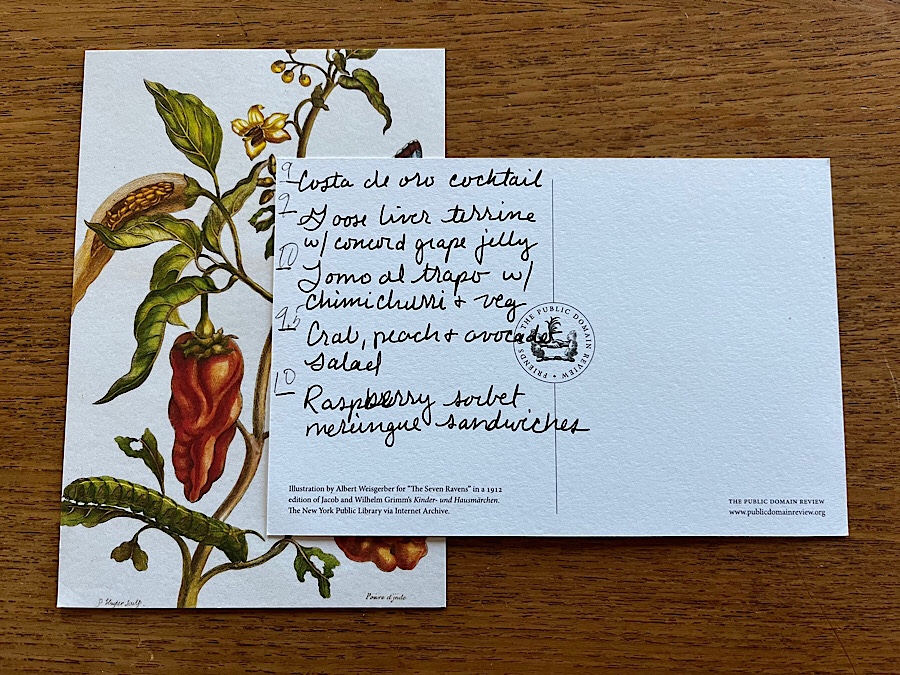 9
Costa de oro cocktail
9
Goose liver terrine
w/ concord grape jelly
10
Lomo al trapo w/
chimichurri + veg
9.5
Crab, peach + avocado
salad
10
Raspberry sorbet
merungue sandwiches
FRIENDS OF THE PUBLIC DOMAIN REVIEW
Illustration by Albert Weisgerber for "The Seven Ravens" in a 1912
edition of Jacob and Wilhelm Grimm's Kinder- und Hausmärchen.
The New York Public Library via Internet Archive.
THE PUBLIC DOMAIN REVIEW
www.publicdomainreview.org
Sculp.